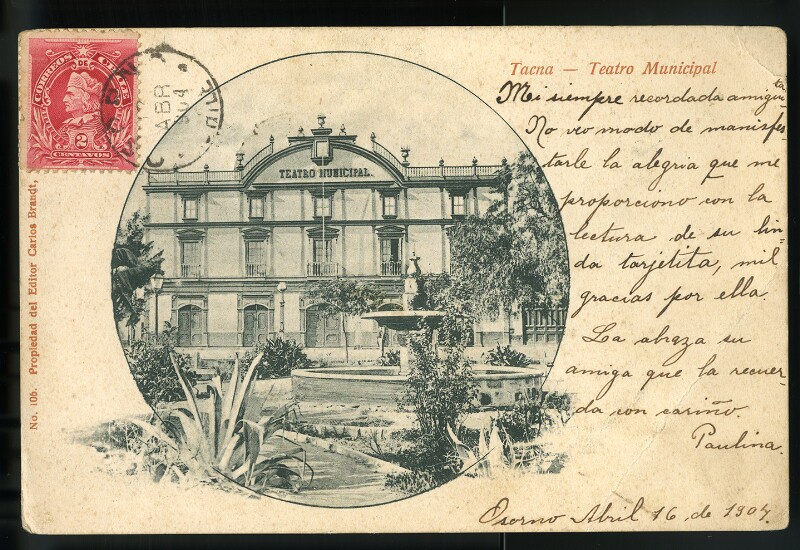 CORREOS DE CHILE
2
CENTAVOS
ABR
Tacna — Teatro Municipal
Mi siempre recordada amigui
ta
No veo modo de manifes-
tarle la alegria que me
proporciono con la
lectura de su lin-
da tarjetita, mil
gracias por ella.
La abraza su
amiga que la recuer-
da con cariño.
Paulina.
Osorno Abril 16 de 1904
TEATRO MUNICIPAL.
No. 106. Propiedad del Editor Carlos Brandt,